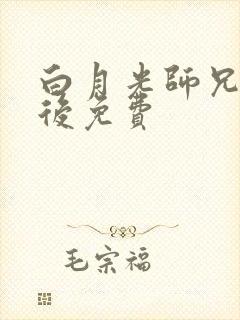 白月光師兄
後免費
毛宗福